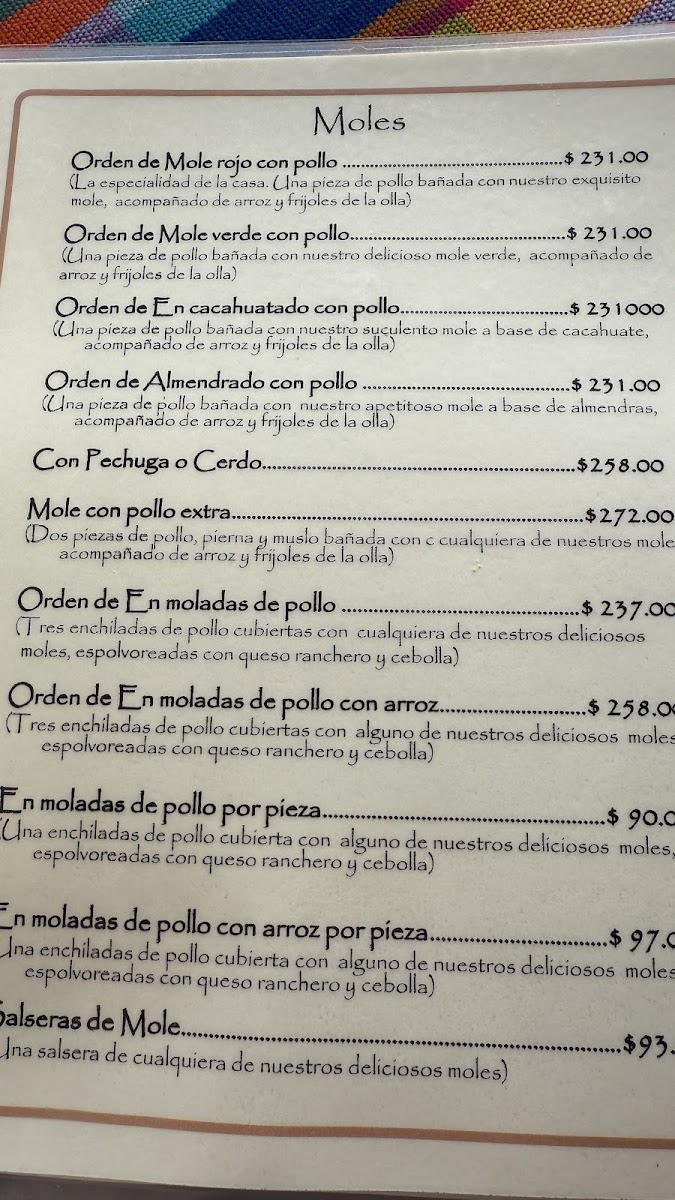 Moles
Orden de Mole rojo con pollo ......................................................$ 231.00
(La especialidad de la casa. Una pieza de pollo bañada con nuestro exquisito
mole, acompañado de arroz y frijoles de la olla)
Orden de Mole verde con pollo.....................................................$ 231.00
(Una pieza de pollo bañada con nuestro delicioso mole verde, acompañado de
arroz y frijoles de la olla)
Orden de En cacahuatado con pollo.........................................$ 231000
(Una pieza de pollo bañada con nuestro suculento mole a base de cacahuate,
acompañado de arroz y frijoles de la olla)
Orden de Almendrado con pollo ..................................................$ 231.00
(Una pieza de pollo bañada con nuestro apetitoso mole a base de almendras,
acompañado de arroz y frijoles de la olla)
Con Pechuga o Cerdo............................................................................$258.00
Mole con pollo extra....................................................................................$272.00
(Dos piezas de pollo, pierna y muslo bañada con c cualquiera de nuestros mole
acompañado de arroz y frijoles de la olla)
Orden de En moladas de pollo .....................................................$ 237.00
(Tres enchiladas de pollo cubiertas con cualquiera de nuestros deliciosos
moles, espolvoreadas con queso ranchero y cebolla)
Orden de En moladas de pollo con arroz................................$ 258.0
(Tres enchiladas de pollo cubiertas con alguno de nuestros deliciosos moles
espolvoreadas con queso ranchero y cebolla)
En moladas de pollo por pieza...............................................................$ 90.0
(Una enchiladas de pollo cubierta con alguno de nuestros deliciosos moles,
espolvoreadas con queso ranchero y cebolla)
En moladas de pollo con arroz por pieza.......................................$ 97.0
Una enchiladas de pollo cubierta con alguno de nuestros deliciosos moles
espolvoreadas con queso ranchero y cebolla)
Salseras de Mole..............................................................................................$93.
Una salsera de cualquiera de nuestros deliciosos moles)